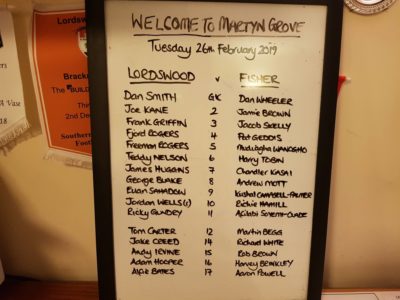 WELCOME TO MARTYN GROVE
Tuesday 26th February 2019
LORDSWOOD v FISHER
DAN SMITH GK DAN WHEELER
JOE KANE 2 JAMIE BROWN
FRANK GRIFFIN 3 JACOB
Fjord ROGERS 4 PAT GEDDIS
Freeman ROGERS 5
Teddy NELSON 6 HARRY TOBIN
JAMES HUGGINS 7 CHANDLER KASAI
GEORGE BLAKE 8 ANDREW MOTT
EUAN SAHADOW 9 CAMPBELL-PALMER
Jordan WELLS(c) 10 RICHIE HAMILL
Ricky GUNDRY 11
TOM CARTER 12 MARTIN BEGG
JAKE CREED 14 RICHARD WHITE
ANDY IRVINE 15 ROB BROWN
ADAM HOOPER 16 HARVEY BRINKLEY
ALFIE BATES 17 AARON POWELL
Lordsw
Brack
The
Thi
2nd De
Southern
Foot
A Vase
18